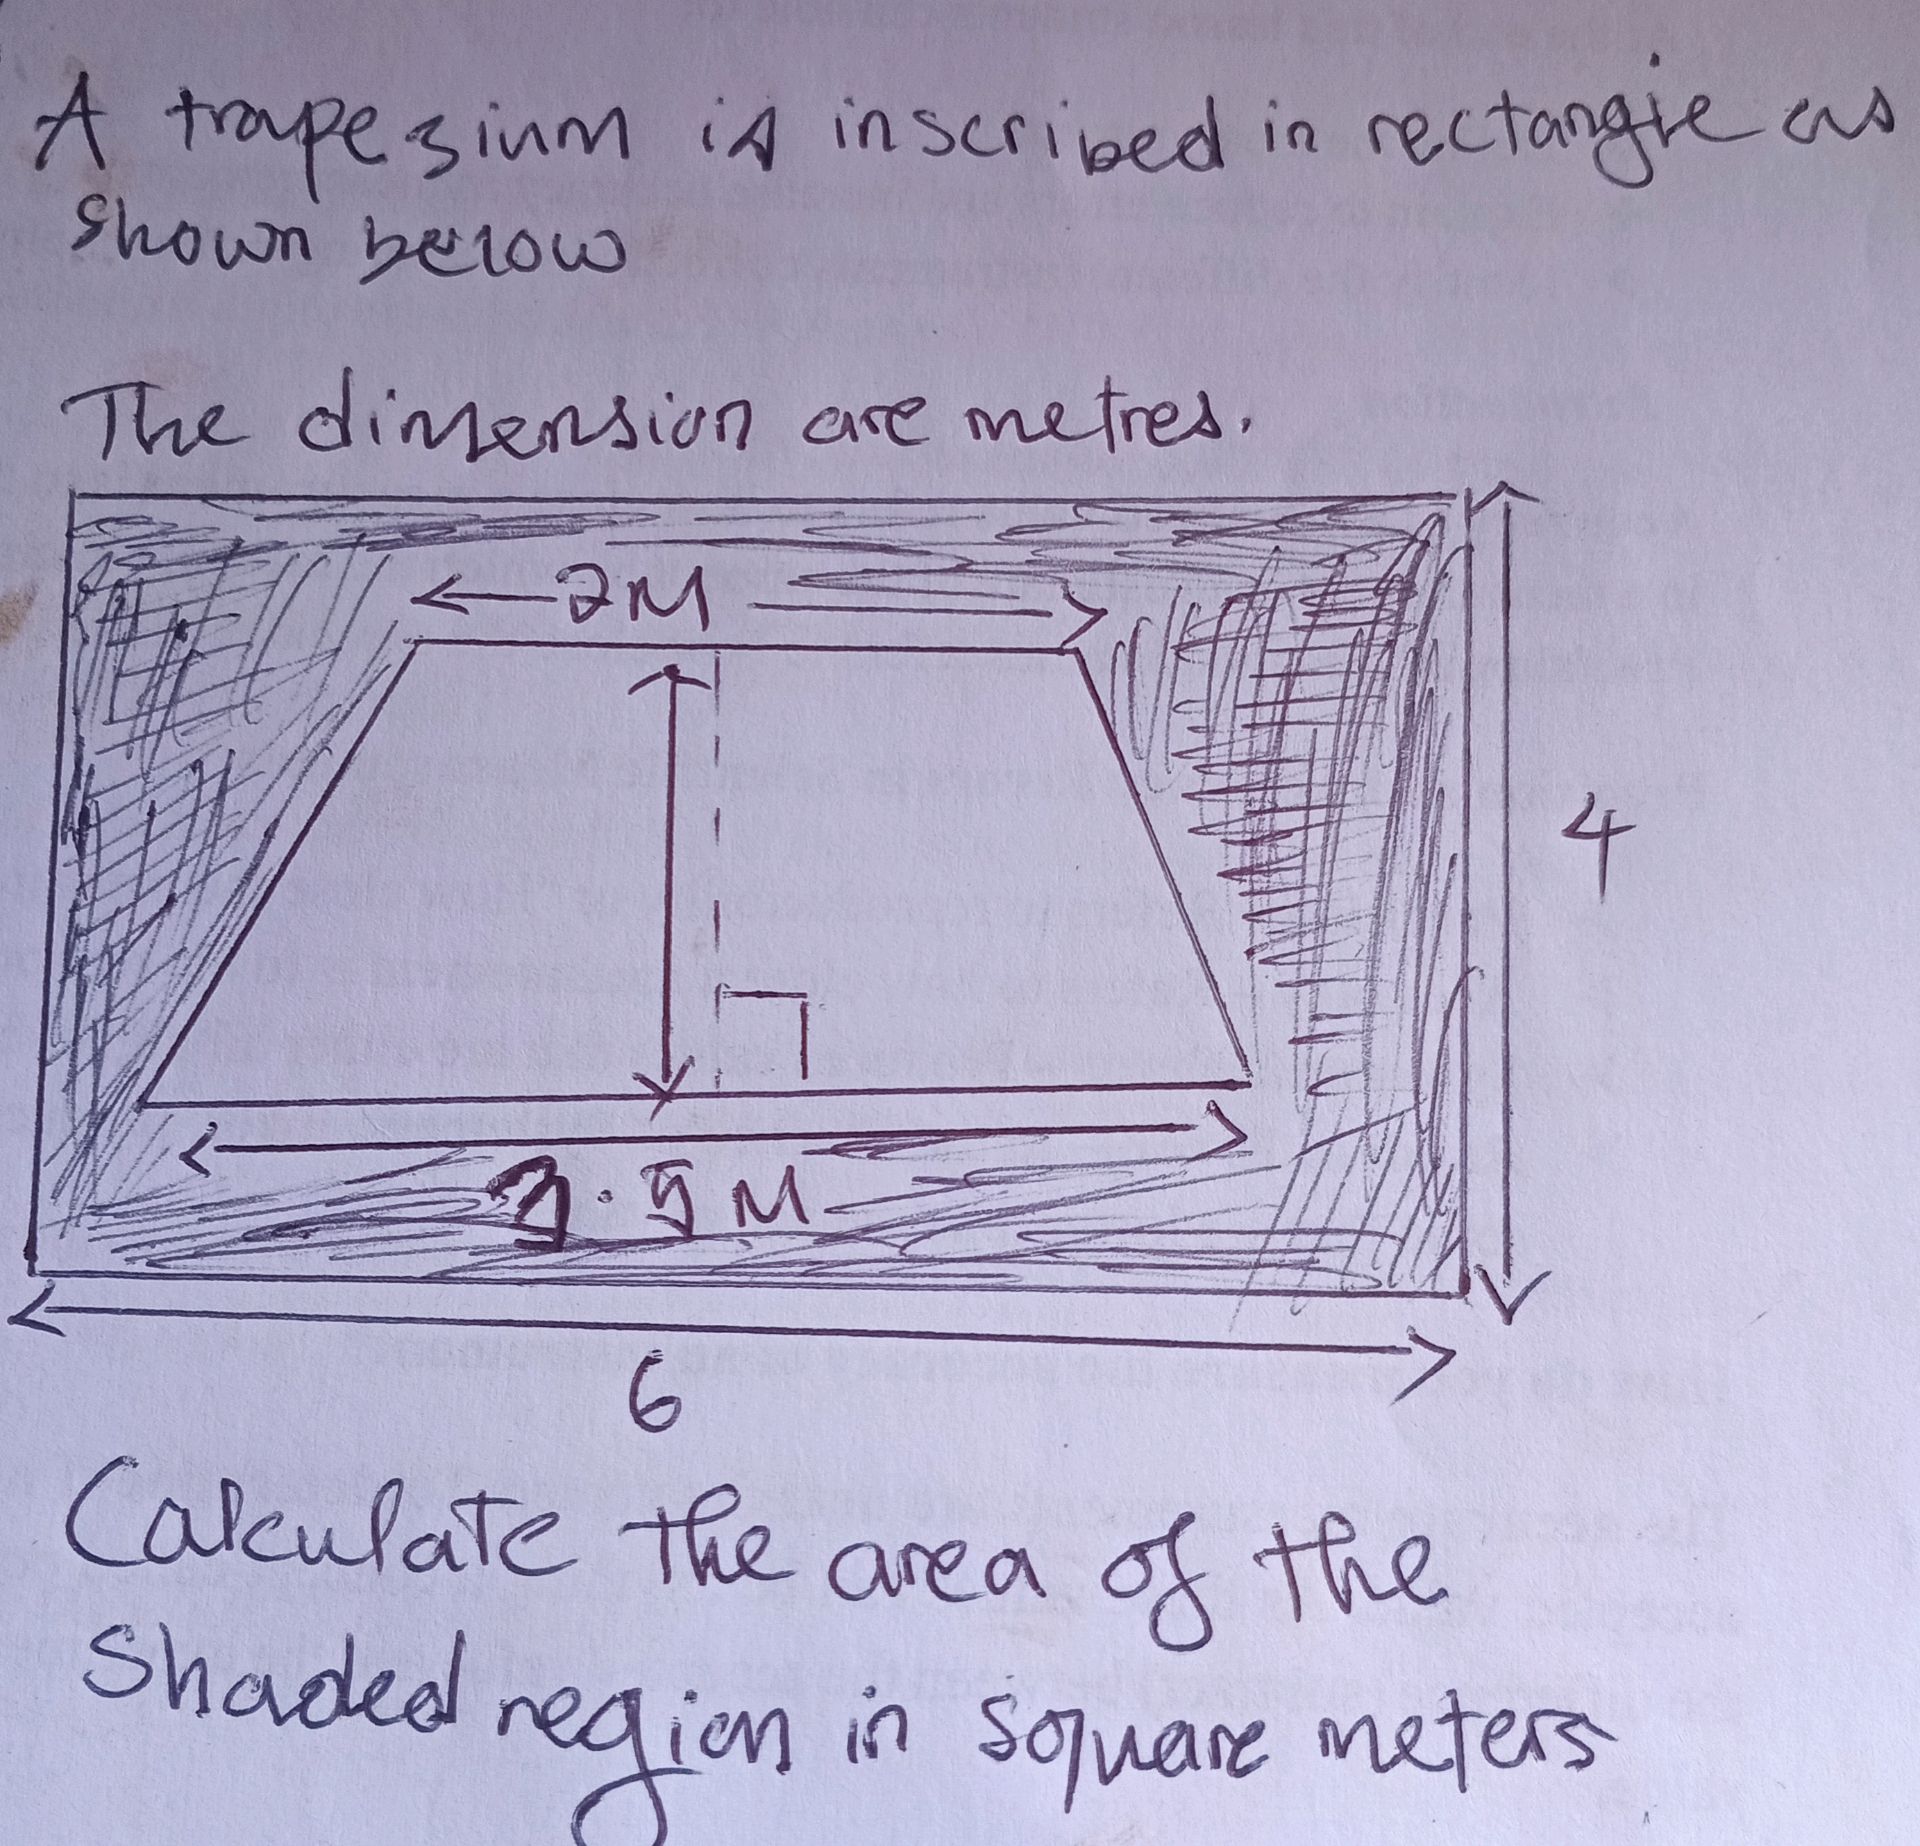 A trapezium is inscribed in rectangle as
shown below
The dimension are metres.
2M
4
3.5M
6
Calculate the area of the
Shaded region in square meters